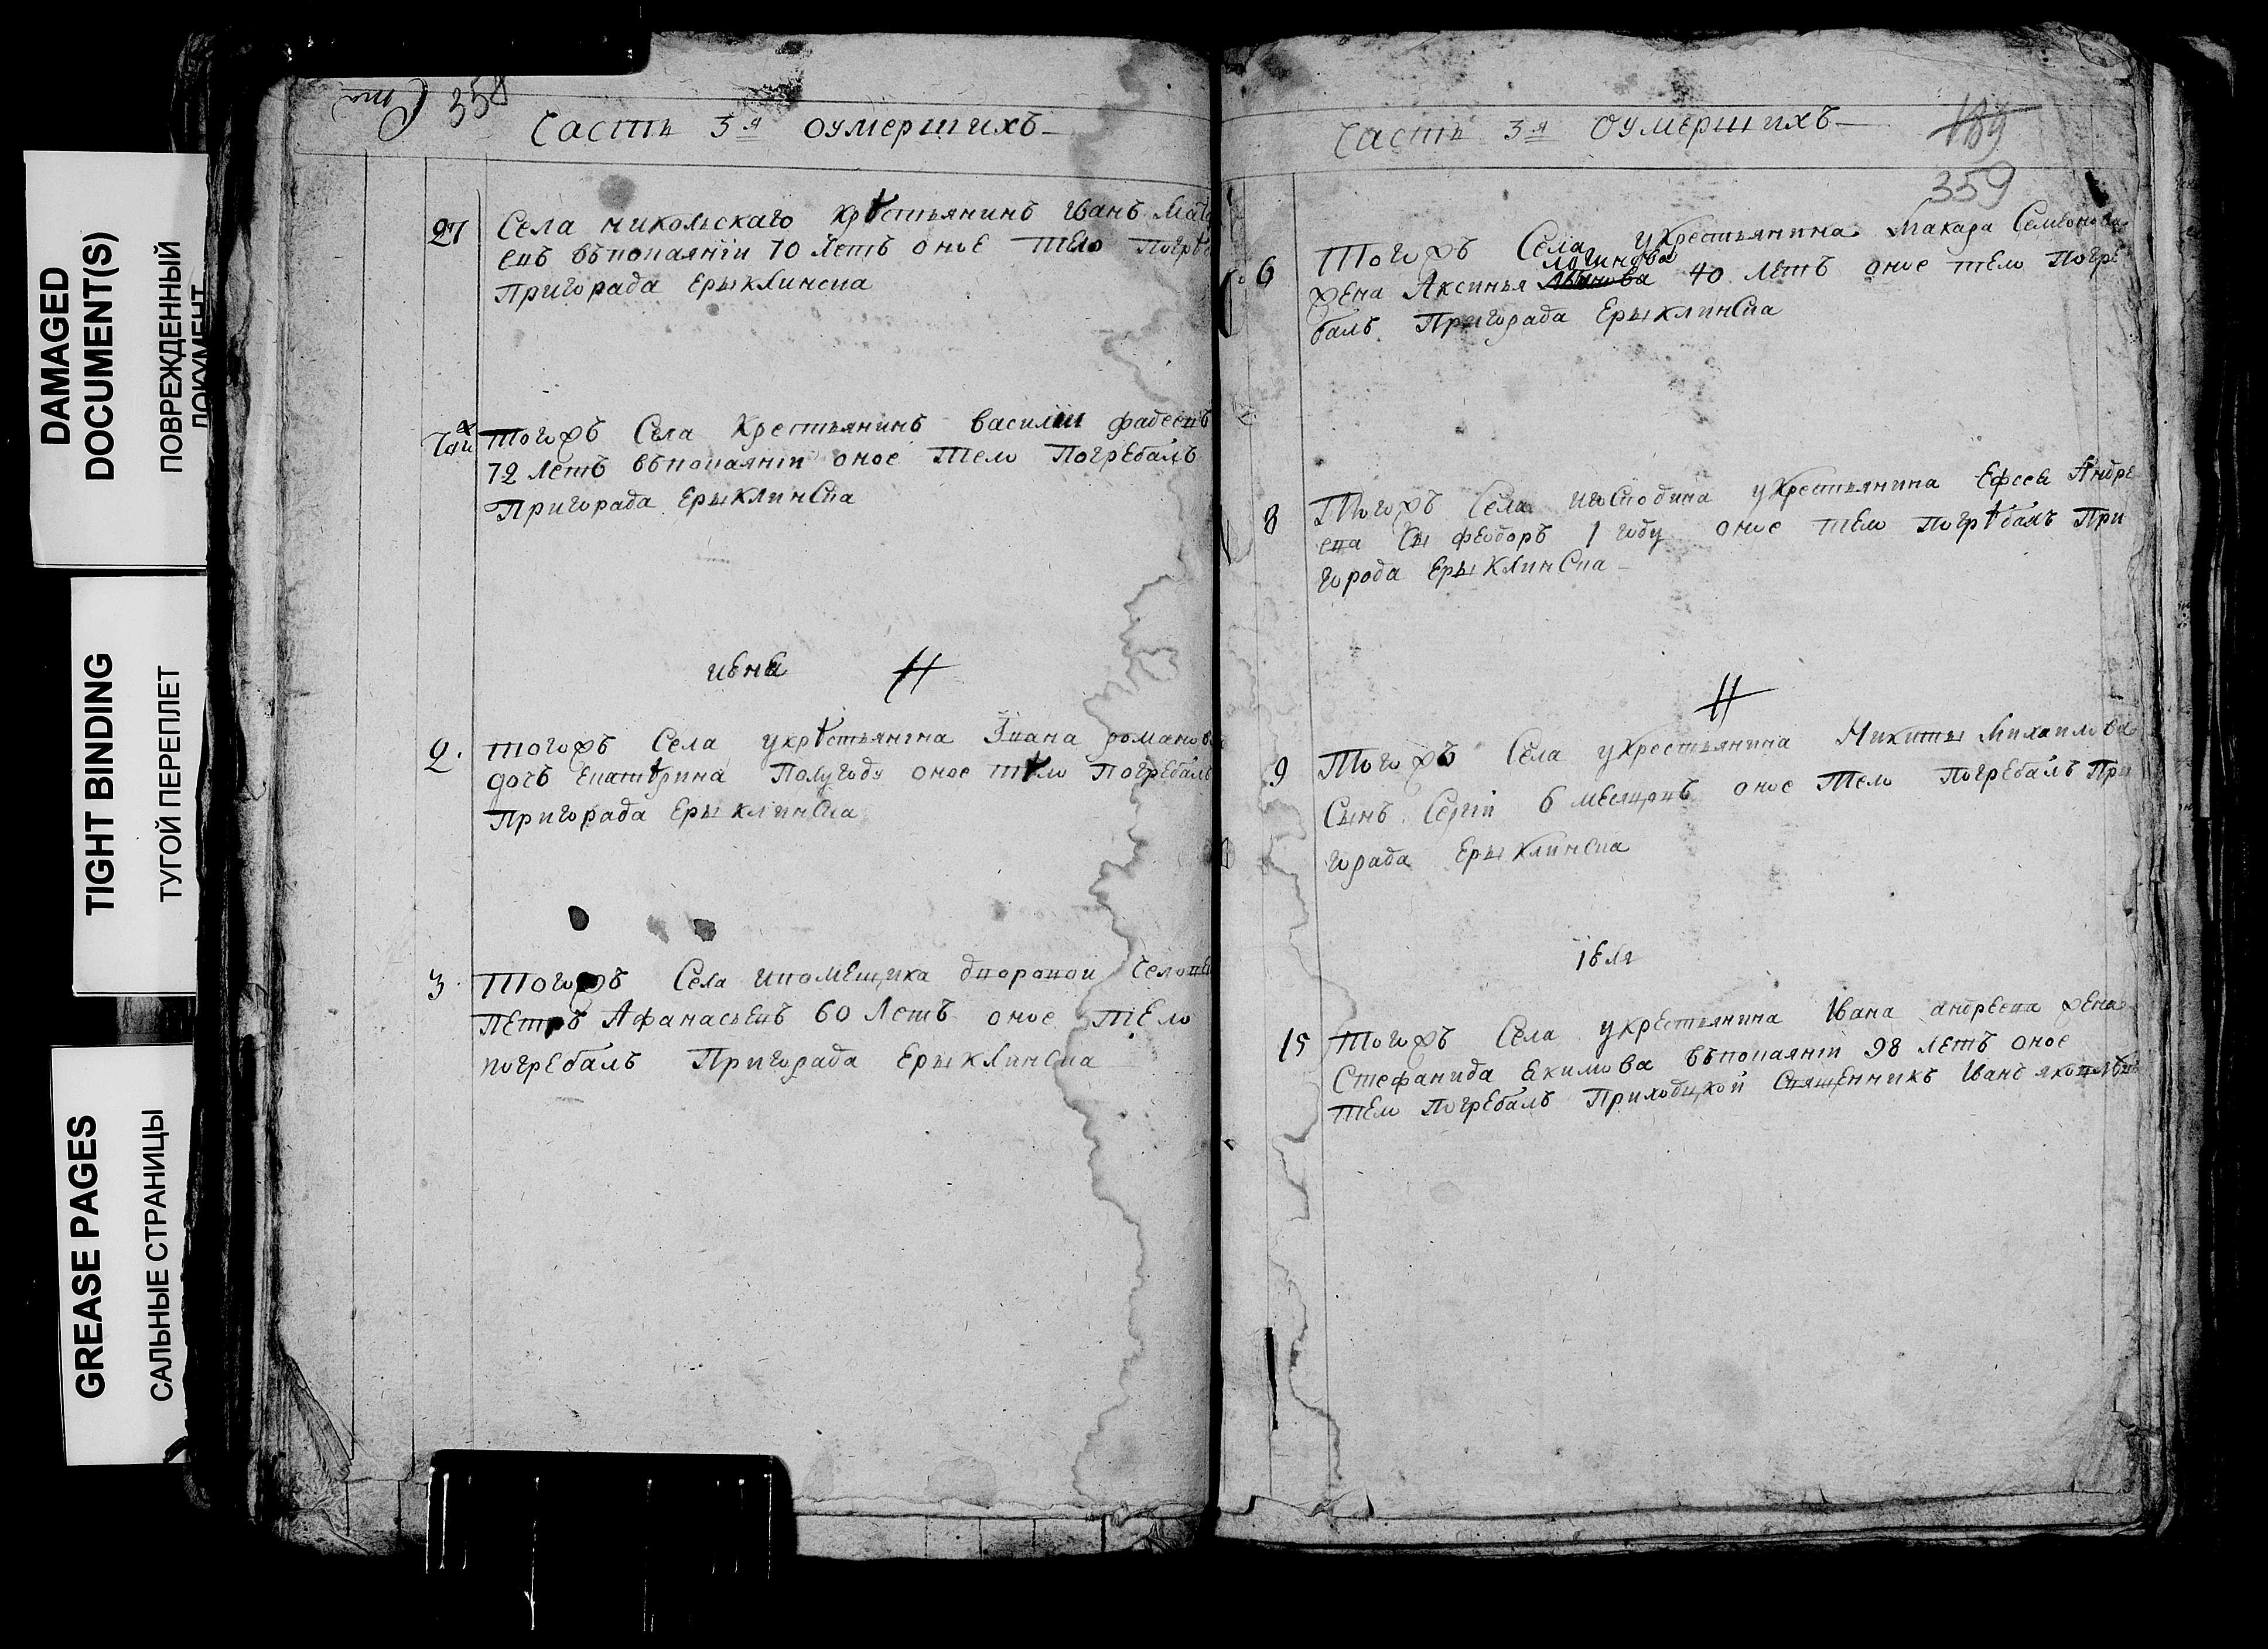 DAMAGED
DOCUMENT(S)
ПОВРЕЖДЕННЫЙ
ДОКУМЕНТ
TIGHT BINDING
ТУГОЙ ПЕРЕПЛЕТ
GREASE PAGES
САЛЬНЫЕ СТРАНИЦЫ
358
Часть 3я оумершихъ
27 Села никольскаго крестьянинъ Иванъ
евъ въпокаянїи 70 летъ оное тело Погре
Пригорада Ерыклинска
тогожъ Села Крестьянинъ василии фадеевъ
72 летъ въпокаянїи оное Тело Погребалъ
Пригорада Ерыклинска
июня
2. тогожъ Села укрестьянина Романов
дочь Екатерина Полугоду оное тело Погребалъ
Пригорада Ерыклинска
3 Тогожъ Села ипомещика двороваи Челове
Петръ Афанасьевъ 60 Летъ оное тело
погребалъ Пригорада Ерыклинска
Часть 3я Оумершихъ
189
359
6 Тогожъ Села укрестьянина Макара Семионова
логинова
жена Аксинья 40 летъ оное тело Погре
балъ Пригорада Ерыклинска
8 Тогожъ Села игосподина укрестьянина Ефсея Андре
ева Сы феодоръ 1 году оное тело погребалъ При
города Ерыклинска
9 Тогожъ Села укрестьянина Никиты Михаилова
Сынъ Сергїй 6 месяцовъ оное Тело погребалъ При
горада Ерыклинска
июля
15 Тогожъ Села укрестьянина Ивана андреева жена
Стефанида Екимова въпокаянїи 98 летъ оное
тело погребалъ Приходцкой Священникъ Иванъ яковлевъ